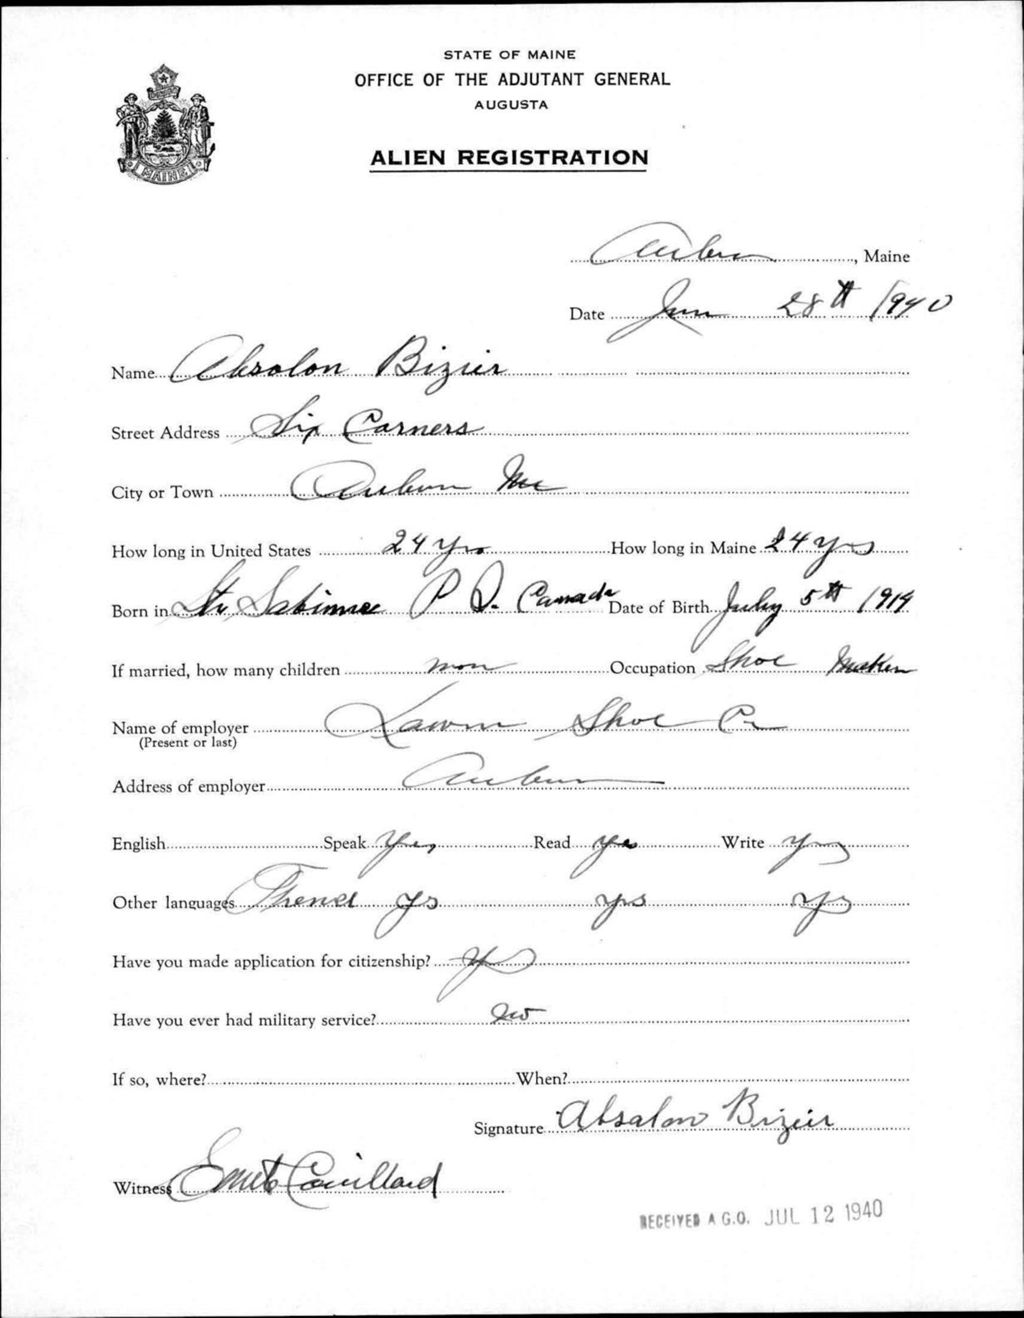 STATE OF MAINE
OFFICE OF THE ADJUTANT GENERAL
AUGUSTA
ALIEN REGISTRATION
MAINE
Auburn, Maine
Date Jun 28th 1940
Name Absolon Bizier
Street Address Six Corners
City or Town Auburn Me
How long in United States 24 yrs How long in Maine 24 yrs
Born in St Sabine P Q. Canada Date of Birth July 5th 1914
If married, how many children non Occupation Shoe Maker
Name of employer Shoe Co
(Present or last)
Address of employer Auburn
English Speak Yes Read Yes Write Yes
Other languages French yes yes yes
Have you made application for citizenship? Yes
Have you ever had military service? No
If so, where? When?
Signature Absalon Bizier
Witness Couillard
RECEIVED A.G.O. JUL 12 1940